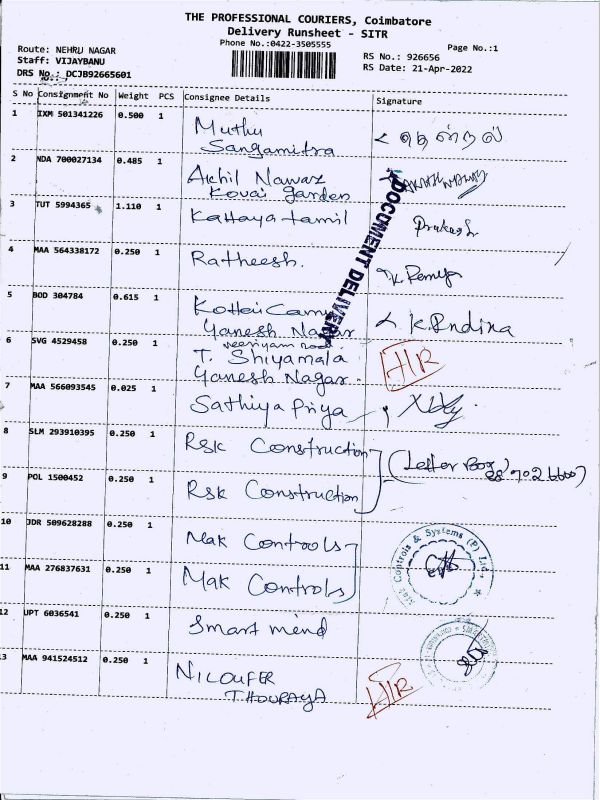 THE PROFESSIONAL COURIERS, Coimbatore
Delivery Runsheet - SITR
Phone No.:0422-3505555
Page No.:1
Route: NEHRU NAGAR
RS No.: 926656
Staff: VIJAYBANU
RS Date: 21-Apr-2022
DRS No.: DCJB92665601
S No Consignment No Weight PCS Consignee Details Signature
1 IXM 501341226 0.500 1 Muthu
Sangamitra
2 NDA 700027134 0.485 1 Akhil Nawaz
Kovai Garden
3 TUT 5994365 1.110 1 Kattaya tamil Prakash
4 MAA 564338172 0.250 1 Ratheesh. K. Remya
5 BOD 304784 0.615 1 Kottai
Ganesh Nagar
DOCUMENT DELIVERY
6 SVG 4529458 0.250 1 T. Shiyamala
Ganesh Nagar.
7 MAA 566093545 0.025 1 Sathiya Priya
8 SLM 293910395 0.250 1 RSK Construction (Letter Box)
9 POL 1500452 0.250 1 RSK Construction
10 JDR 509628288 0.250 1 Mak Controls
Mak Controls & Systems (P) Ltd.,
11 MAA 276837631 0.250 1 Mak Controls
12 UPT 6036541 0.250 1 Smart mind
13 MAA 941524512 0.250 1 NILOUFER
THOURAYA